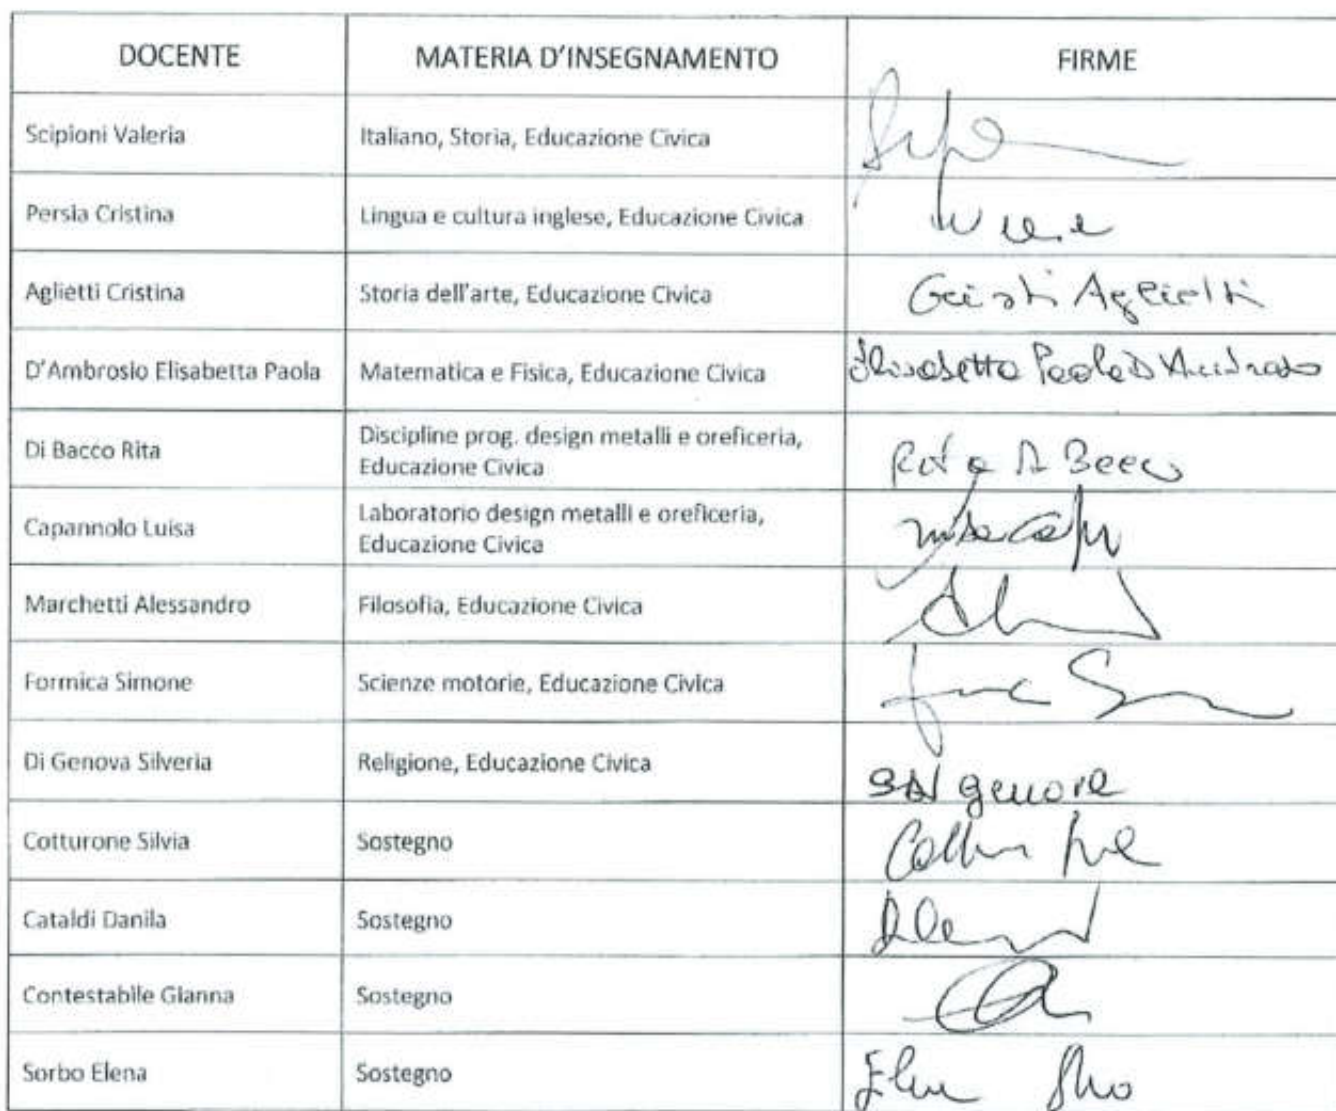 DOCENTE MATERIA D'INSEGNAMENTO FIRME
Scipioni Valeria Italiano, Storia, Educazione Civica
Persia Cristina Lingua e cultura inglese, Educazione Civica
Aglietti Cristina Storia dell'arte, Educazione Civica Aglietti
D'Ambrosio Elisabetta Paola Matematica e Fisica, Educazione Civica Elisabetta Paola D'Ambrosio
Di Bacco Rita Discipline prog. design metalli e oreficeria, Rita Di Bacco
Educazione Civica
Capannolo Luisa Laboratorio design metalli e oreficeria,
Educazione Civica
Marchetti Alessandro Filosofia, Educazione Civica
Formica Simone Scienze motorie, Educazione Civica
Di Genova Silveria Religione, Educazione Civica Genova
Cotturone Silvia Sostegno
Cataldi Danila Sostegno
Contestabile Gianna Sostegno
Sorbo Elena Sostegno